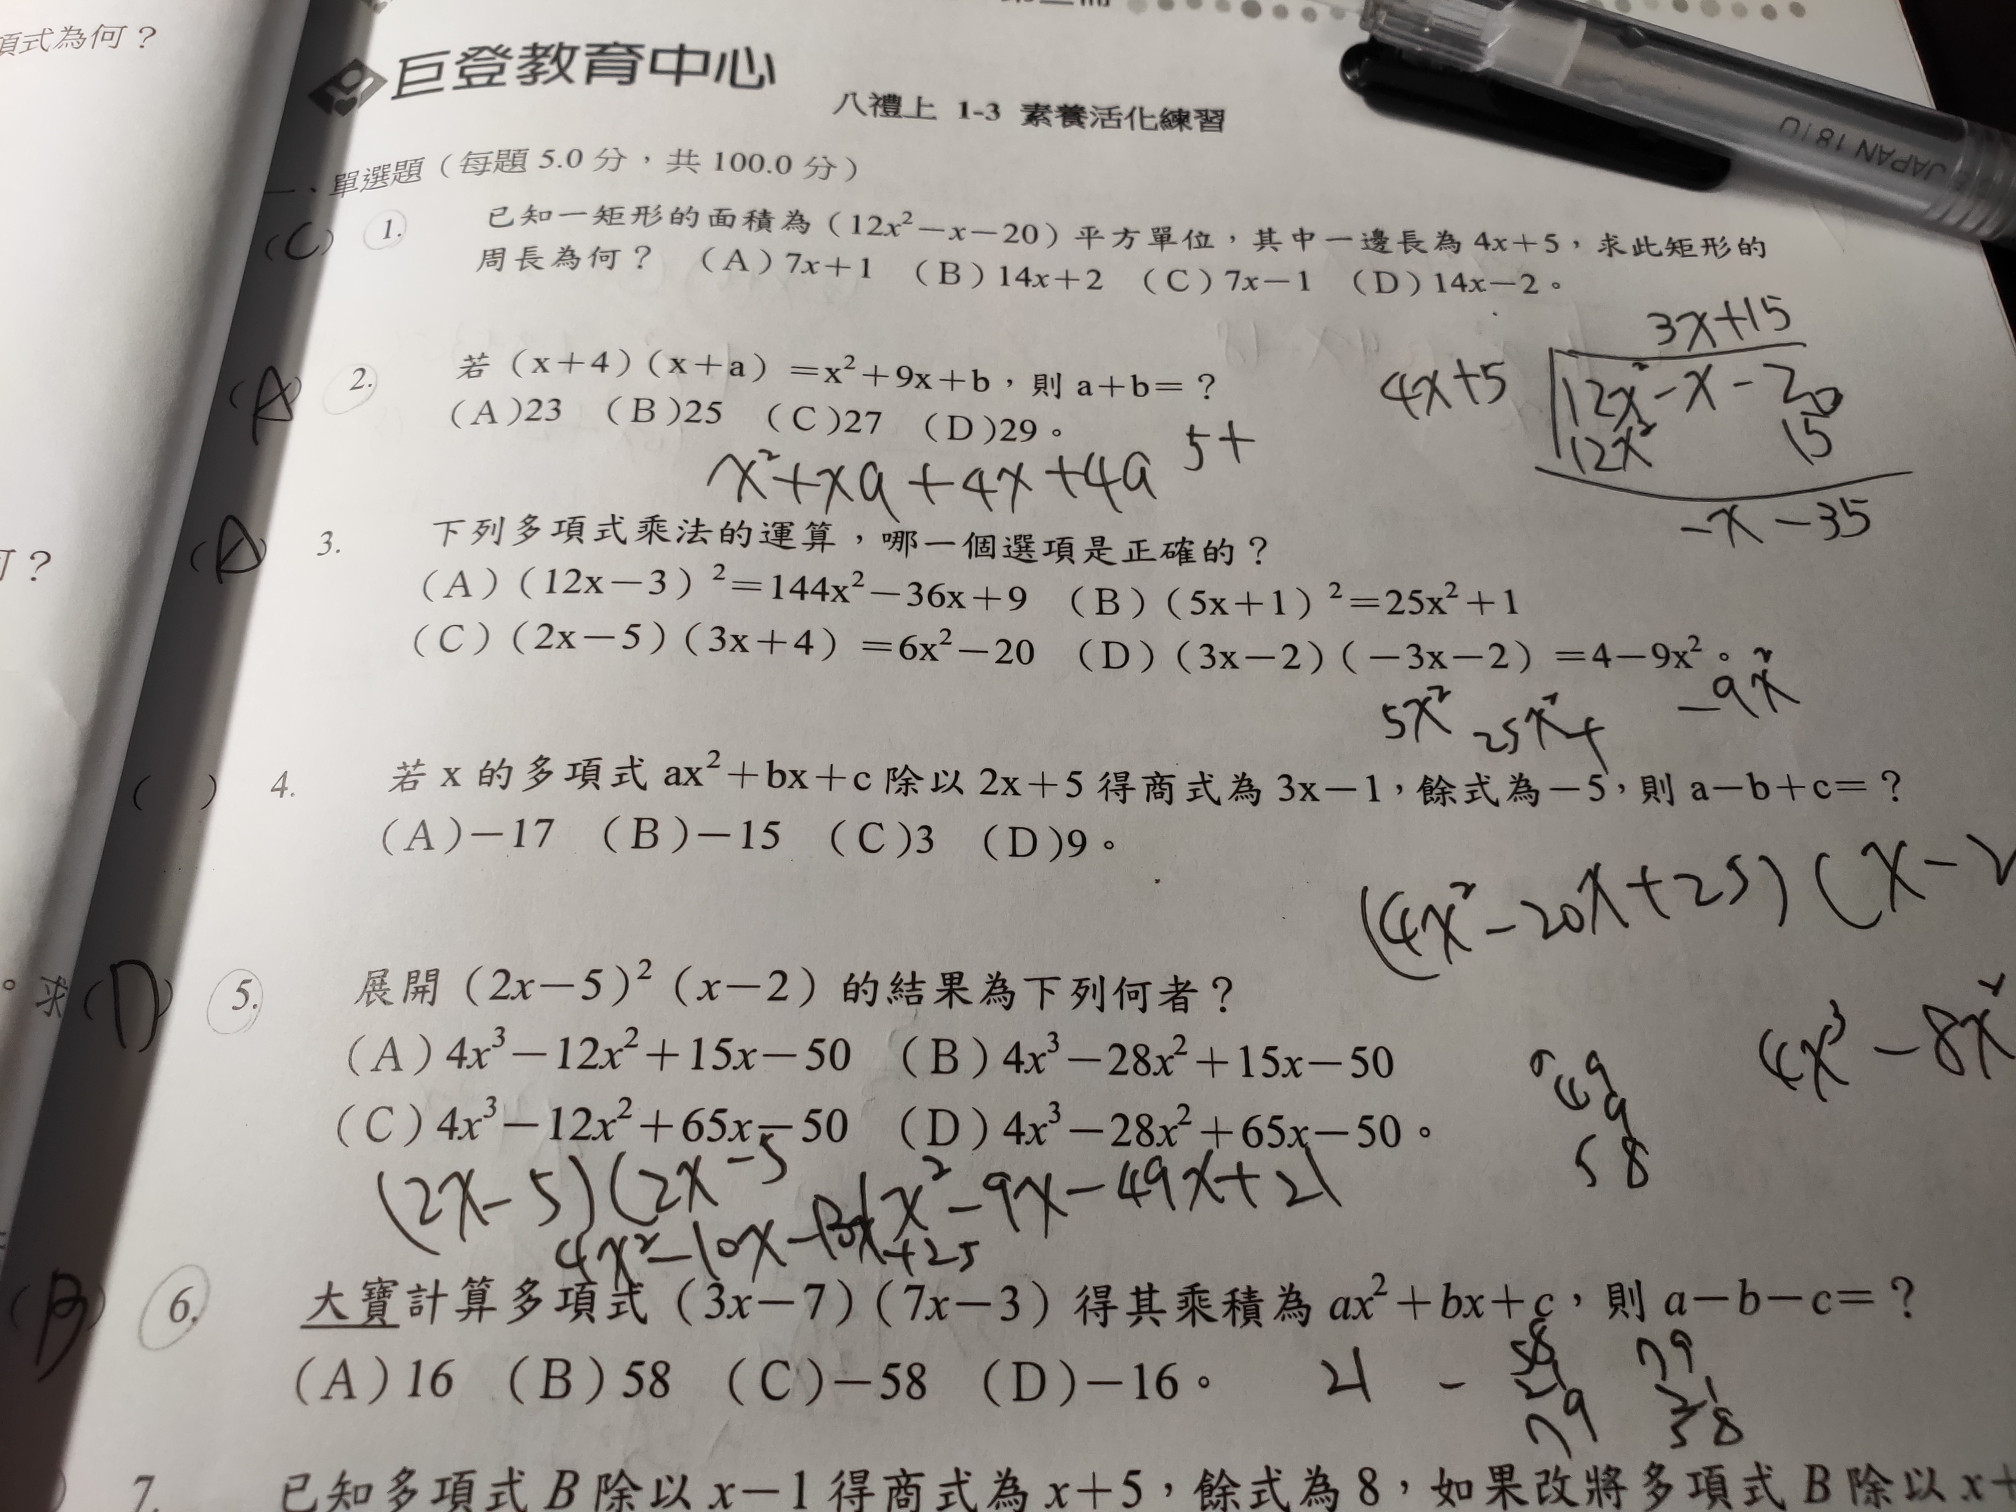 項式為何？
巨登教育中心
八禮上 1-3 素養活化練習
一、單選題（每題 5.0 分，共 100.0 分）
(C) 1. 已知一矩形的面積為（12x²－x－20）平方單位，其中一邊長為 4x＋5，求此矩形的
周長為何？ （A）7x＋1 （B）14x＋2 （C）7x－1 （D）14x－2。
3x+15
4x+5 12x²-x-20
12x² 15
-x-35
(A) 2. 若（x＋4）（x＋a）＝x²＋9x＋b，則 a＋b＝？
（A)23 （B)25 （C)27 （D)29。
x²+xa+4x+4a 5+
3. 下列多項式乘法的運算，哪一個選項是正確的？
（A）（12x－3）²＝144x²－36x＋9 （B）（5x＋1）²＝25x²＋1
（C）（2x－5）（3x＋4）＝6x²－20 （D）（3x－2）（－3x－2）＝4－9x²。
5x² 25x²+ -9x²
( ) 4. 若 x 的多項式 ax²＋bx＋c 除以 2x＋5 得商式為 3x－1，餘式為－5，則 a－b＋c＝？
（A)－17 （B)－15 （C)3 （D)9。
(4x²-20x+25)(x-2
。求
(D) 5. 展開（2x－5）²（x－2）的結果為下列何者？
（A）4x³－12x²＋15x－50 （B）4x³－28x²＋15x－50
4x³-8x²
（C）4x³－12x²＋65x－50 （D）4x³－28x²＋65x－50。
49
9
58
(2x-5)(2x-5
x²-9x-49x+21
4x²-10x-10x+25
(B) 6. 大寶計算多項式（3x－7）（7x－3）得其乘積為 ax²＋bx＋c，則 a－b－c＝？
（A）16 （B）58 （C）－58 （D）－16。
21 - 58
21
79
79
21
58
7. 已知多項式 B 除以 x－1 得商式為 x＋5，餘式為 8，如果改將多項式 B 除以 x＋
JAPAN 181U